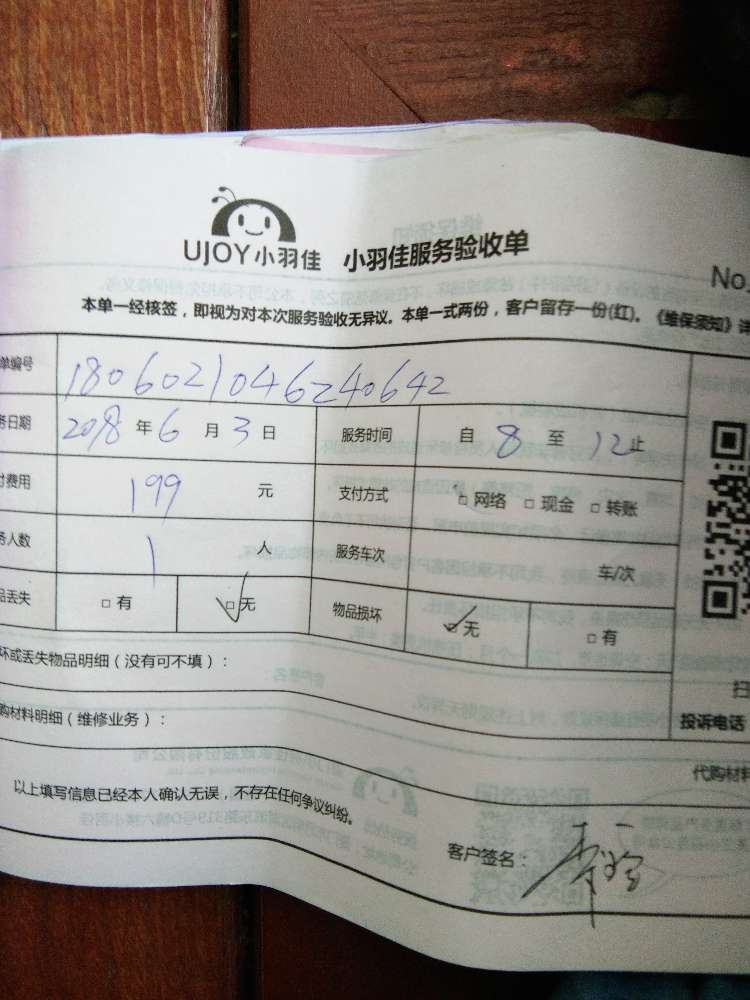 UJOY小羽佳 小羽佳服务验收单
No.
本单一经核签，即视为对本次服务验收无异议。本单一式两份，客户留存一份(红)。《维保须知》详
单编号 1806021046240642
务日期 2018 年 6 月 3 日 服务时间 自 8 至 12 止
付费用 199 元 支付方式 □ 网络 □ 现金 □ 转账
务人数 1 人 服务车次 车/次
品丢失 □ 有 □ 无 物品损坏 □ 无 □ 有
坏或丢失物品明细（没有可不填）：
扫
购材料明细（维修业务）：
投诉电话
代购材料
以上填写信息已经本人确认无误，不存在任何争议纠纷。
客户签名：